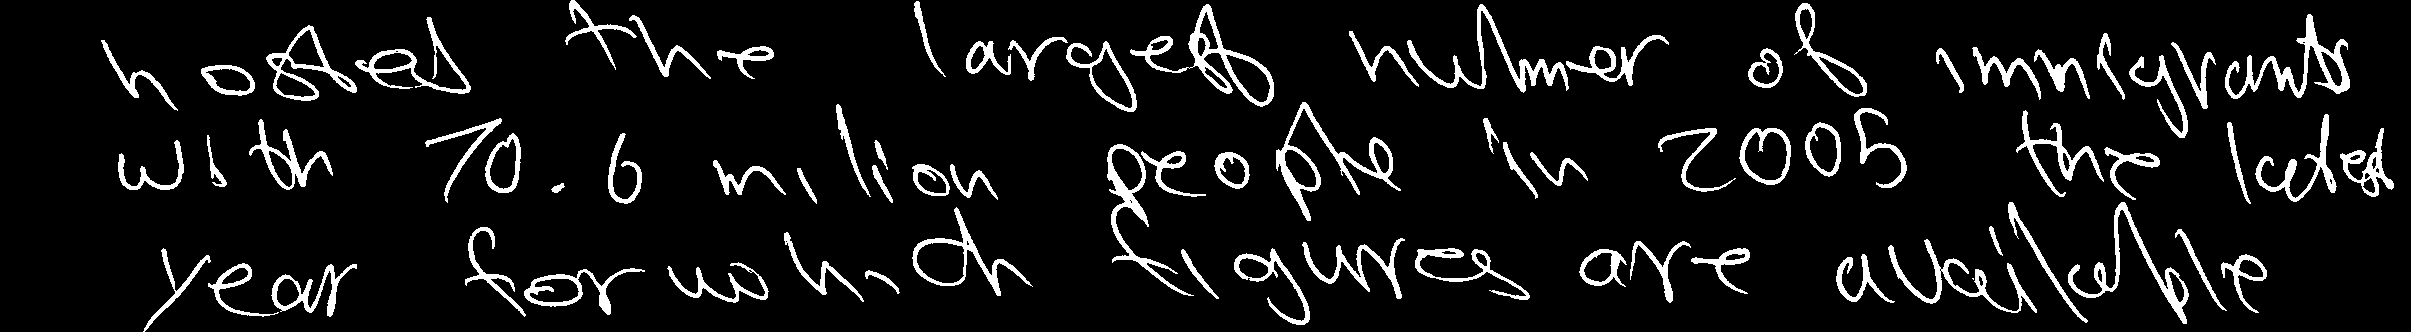 hosted the largest nulmer of immigrants
with 10.6 milion people in 2005 the latest
year for which figures are available